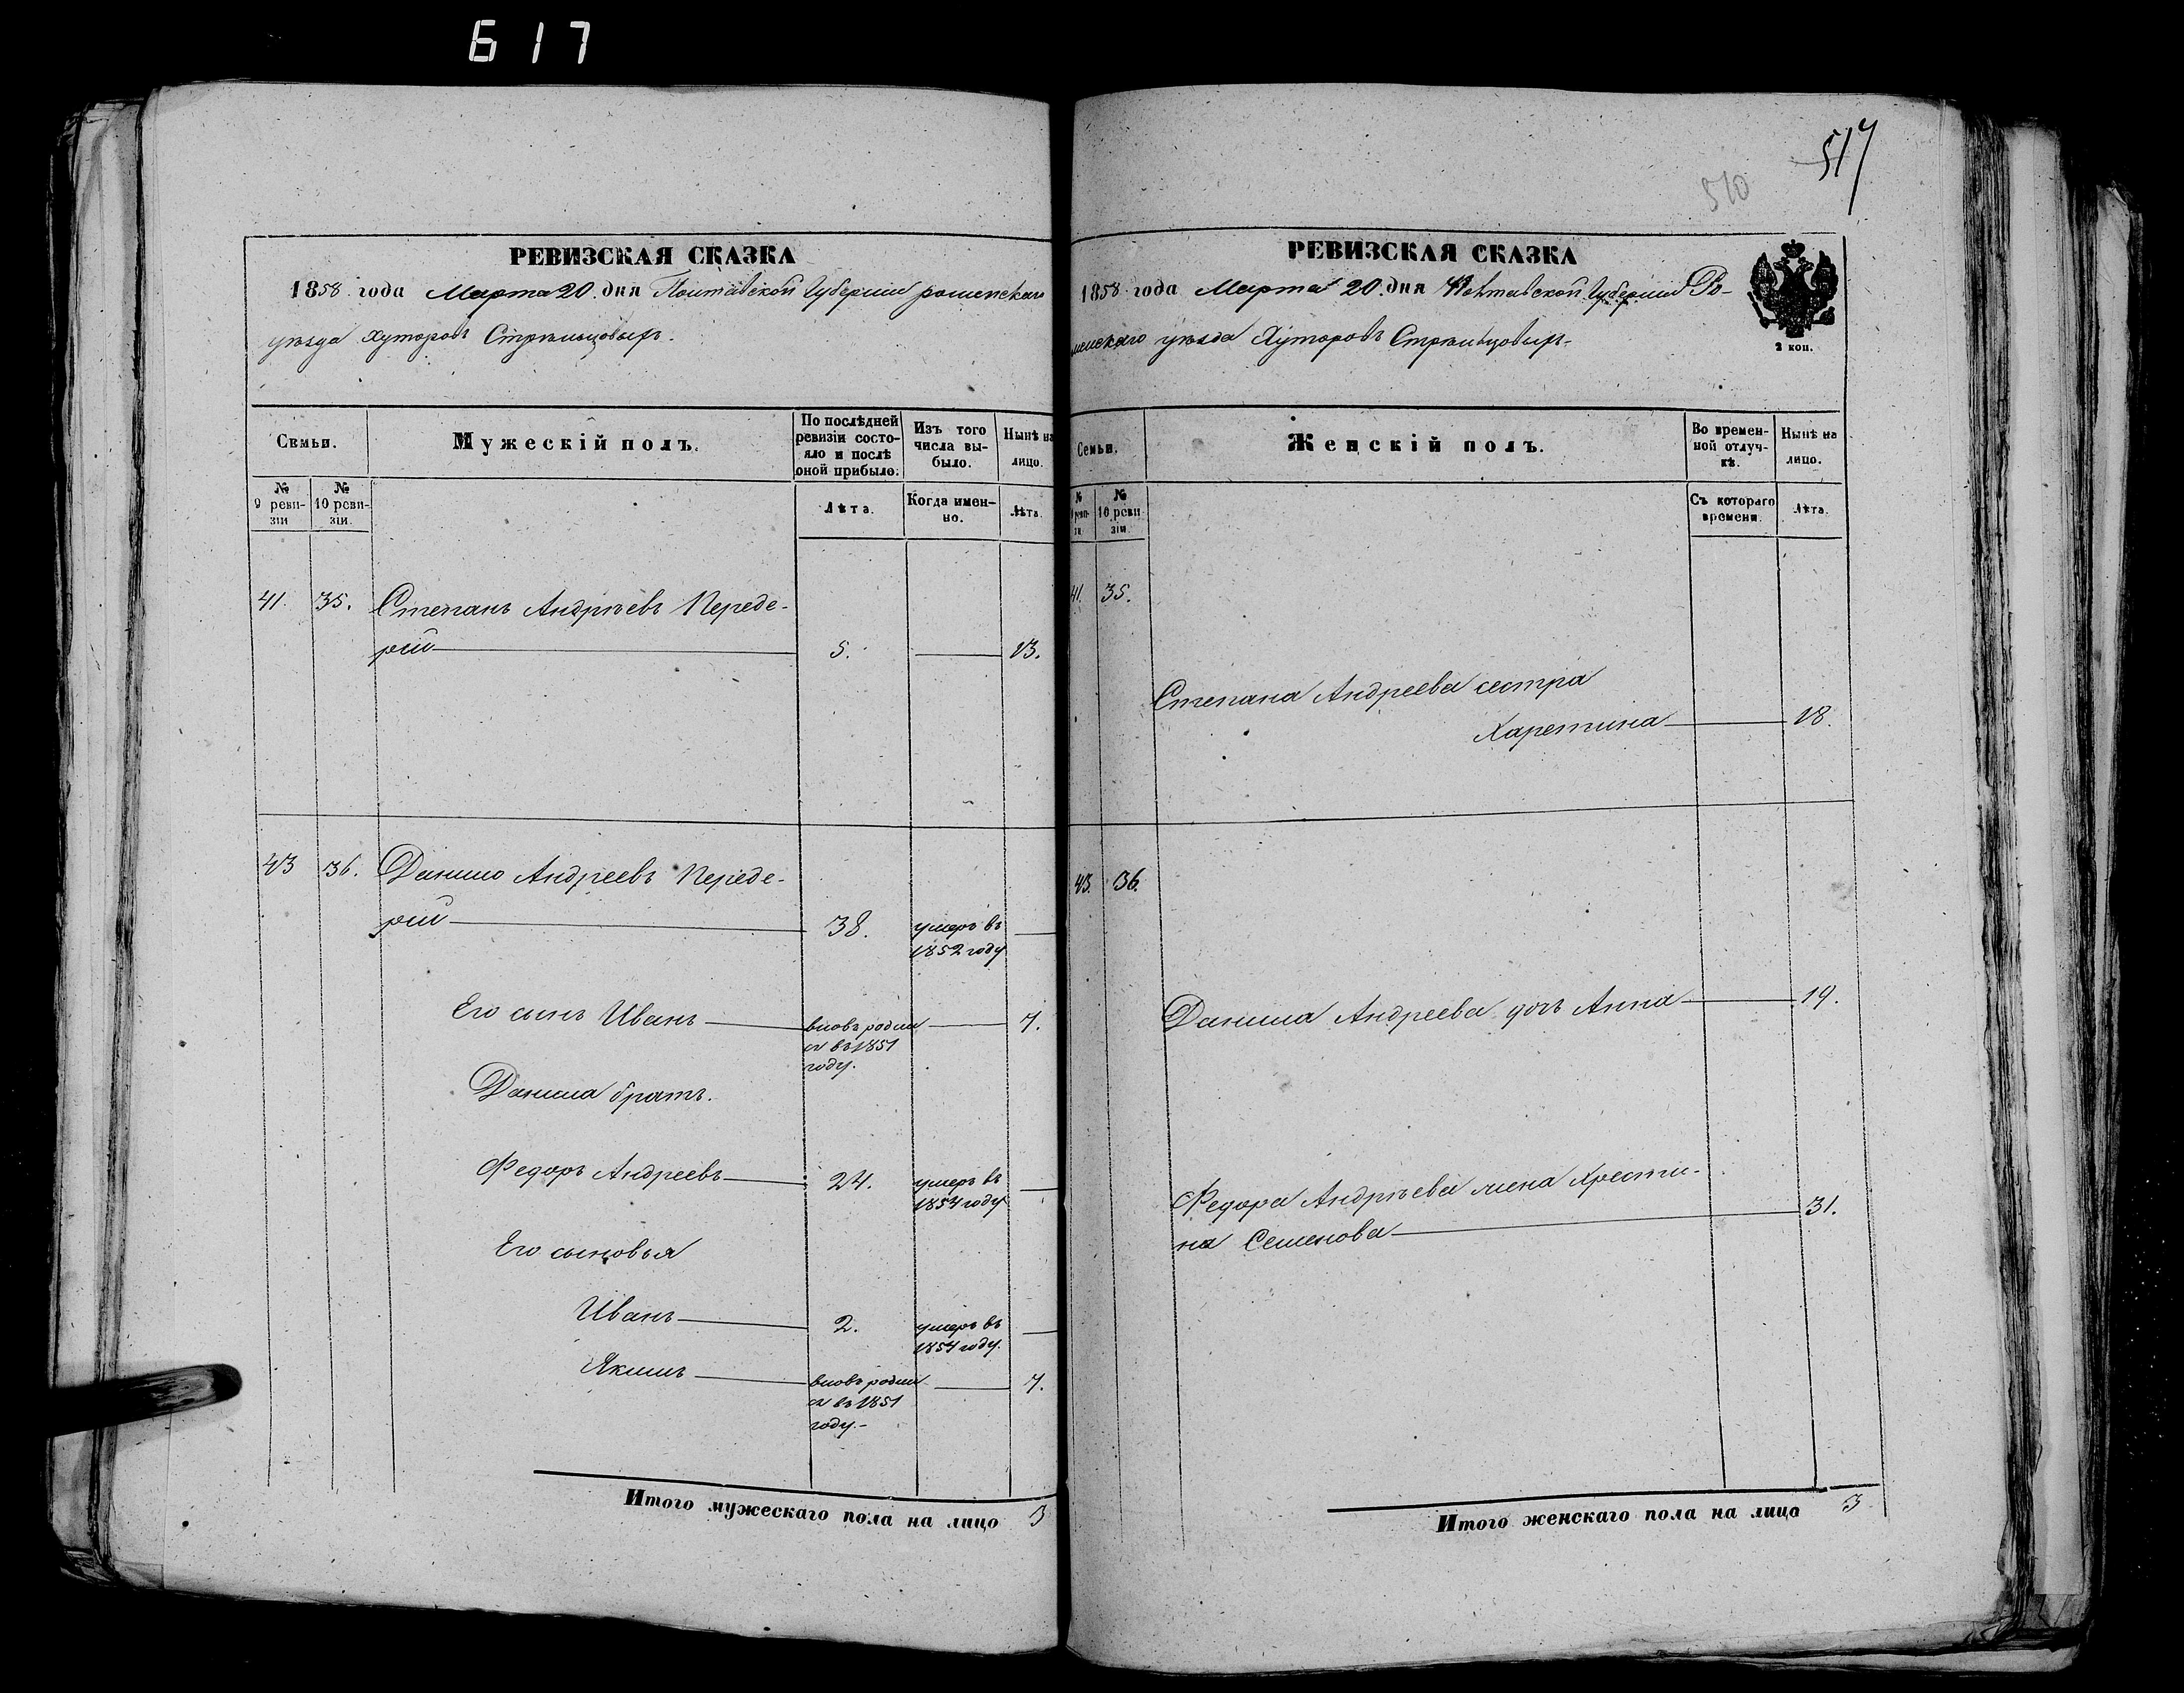 617
РЕВИЗСКАЯ СКАЗКА
1858 года Марта 20 дня Полтавской Губернии роменскаго
уѣзда Хуторовъ Стрѣльцовыхъ.
Семьи.
Мужескій полъ.
По послѣдней ревизіи состояло и послѣ оной прибыло.
Изъ того числа выбыло.
Нынѣ на лицо.
№ 9 ревизіи
№ 10 ревизіи.
Лѣта.
Когда именно.
Лѣта.
41. 35. Степанъ Андрѣевъ Переде-
рій 5. 13.
43 36. Данило Андреевъ Переде-
рій 38. умеръ въ
1852 году
Его сынъ Иванъ вновь родил 7.
ся въ 1851
году.
Данила братъ.
Федоръ Андреевъ 24. умеръ въ
1854 году
Его сыновья
Иванъ 2. умеръ въ
1854 году.
Якимъ вновь родил 7.
ся въ 1851
году.-
Итого мужескаго пола на лицо 3
517
510
РЕВИЗСКАЯ СКАЗКА
1858 года Марта 20 дня Полтавской Губерніи Ро-
менскаго уѣзда Хуторовъ Стрѣльцовыхъ.
2 коп.
Семьи.
Женскій полъ.
Во временной отлучкѣ.
Нынѣ на лицо.
№ 9 ревизіи
№ 10 ревизіи.
Съ котораго времени.
Лѣта.
41. 35.
Степана Андреева сестра
Харетина 18.
43. 36.
Данила Андреева дочь Анна 19.
Федора Андрѣева жена Хрести-
на Семенова 31.
Итого женскаго пола на лицо 3